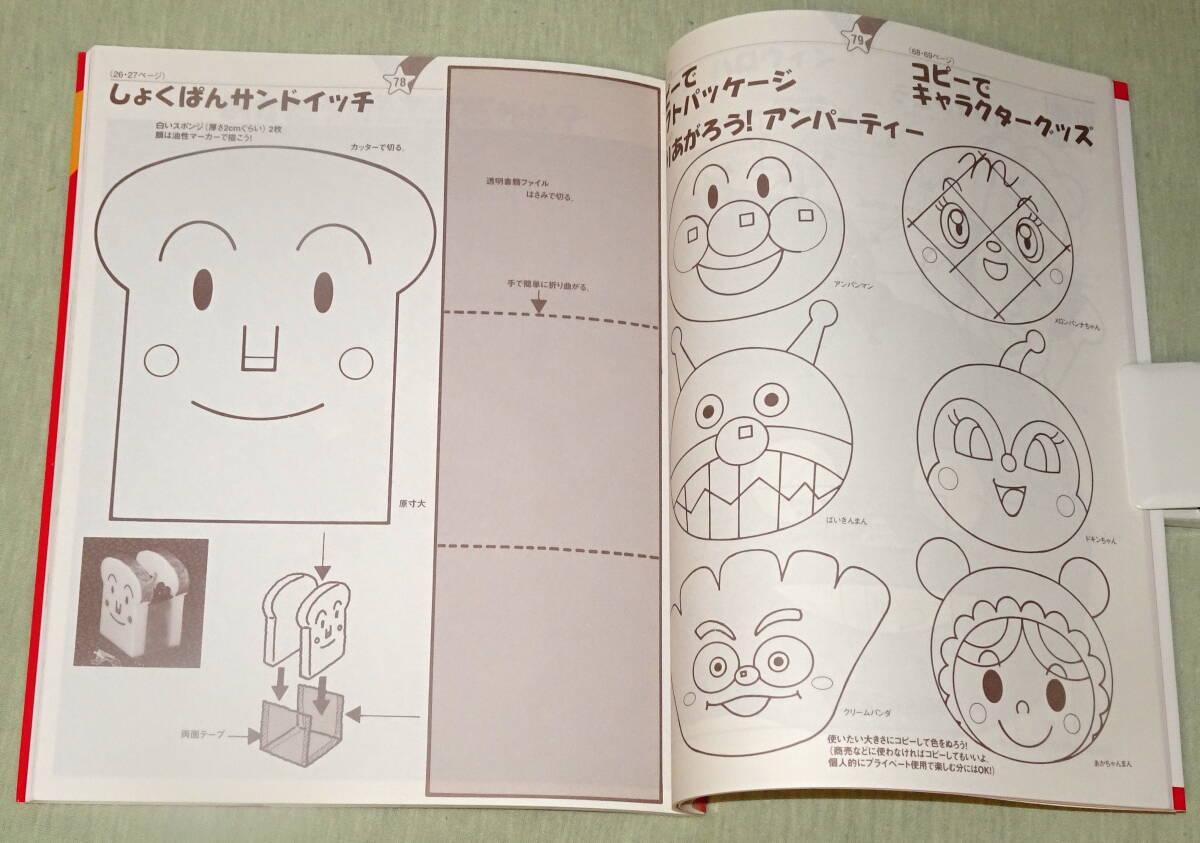 (26・27ページ)
78
しょくぱんサンドイッチ
白いスポンジ(厚さ2cmぐらい)2枚
顔は油性マーカーで描こう!
カッターで切る。
原寸大
両面テープ
透明書類ファイル
はさみで切る。
手で簡単に折り曲がる。
79
ーで
トパッケージ
あがろう! アンパーティー
(68・69ページ)
コピーで
キャラクターグッズ
アンパンマン
メロンパンナちゃん
ばいきんまん
ドキンちゃん
クリームパンダ
あかちゃんまん
使いたい大きさにコピーして色をぬろう!
(商売などに使わなければコピーしてもいいよ。
個人的にプライベート使用で楽しむ分にはOK!)